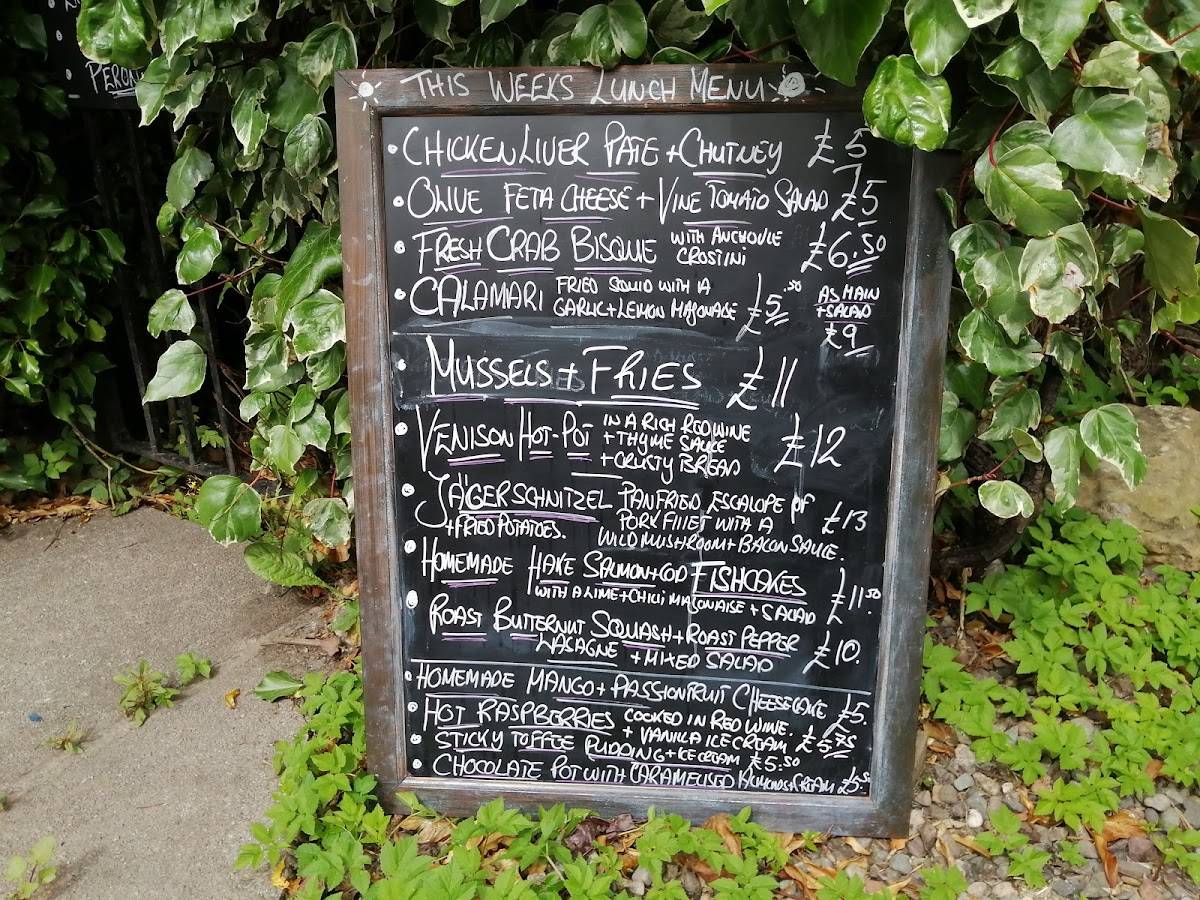 PERONI
THIS WEEKS LUNCH MENU
CHICKEN LIVER PATE + CHUTNEY £5
OLIVE FETA CHEESE + VINE TOMATO SALAD £5
FRESH CRAB BISQUE WITH ANCHOVIE CROSTINI £6.50
CALAMARI FRIED SQUID WITH A GARLIC + LEMON MAYONAISE £5.50 AS MAIN + SALAD £9
MUSSELS + FRIES £11
VENISON HOT-POT IN A RICH RED WINE + THYME SAUCE + CRUSTY BREAD £12
JÄGERSCHNITZEL PANFRIED ESCALOPE OF £13
+ FRIED POTATOES. PORK FILLET WITH A
WILD MUSHROOM + BACON SAUCE.
HOMEMADE HAKE SALMON + COD FISHCAKES £11.50
WITH A LIME + CHILLI MAYONAISE + SALAD
ROAST BUTTERNUT SQUASH + ROAST PEPPER £10.
LASAGNE + MIXED SALAD
HOMEMADE MANGO + PASSIONFRUIT CHEESECAKE £5.
HOT RASPBERRIES COOKED IN RED WINE.
+ VANILLA ICE CREAM £5.75
STICKY TOFFEE PUDDING + ICE CREAM £5.50
CHOCOLATE POT WITH CARAMELISED ALMONDS + CREAM £5.50